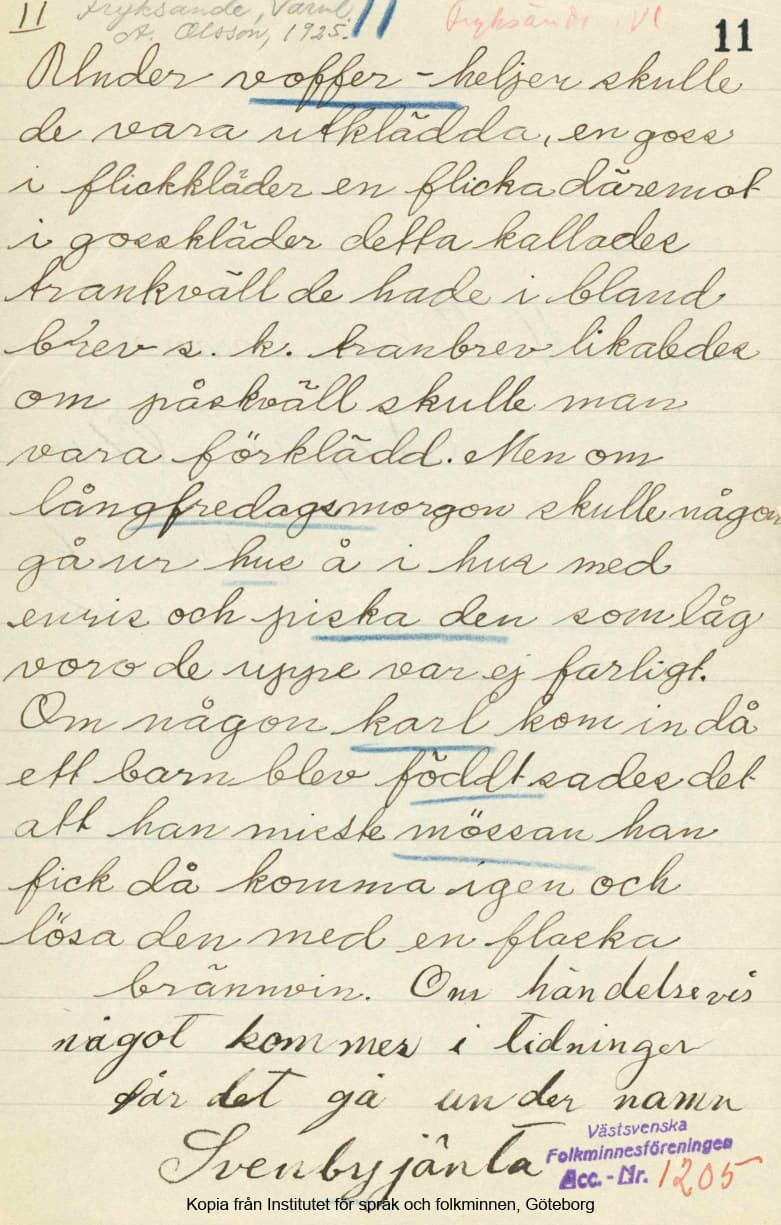 II Fryksände, Värml. 11 Fryksände, Vl
A. Olsson, 1925.
11
Under voffer-heljer skulle
de vara utklädda, en goss
i flickkläder en flicka däremot
i gosskläder detta kallades
trankväll de hade i bland
brev s. k. tranbrev likaledes
om påskväll skulle man
vara förklädd. Men om
långfredagsmorgon skulle någon
gå ur hus å i hus med
enris och piska den som låg
voro de uppe var ej farligt.
Om någon karl kom in då
ett barn blev föddt sades det
att han miste mössan han
fick då komma igen och
lösa den med en flaska
brännvin. Om händelsevis
något kommer i tidninger
får det gå under namn
Svenbyjänta
Västsvenska
Folkminnesföreningen
Acc. - Nr. 1205
Kopia från Institutet för språk och folkminnen, Göteborg